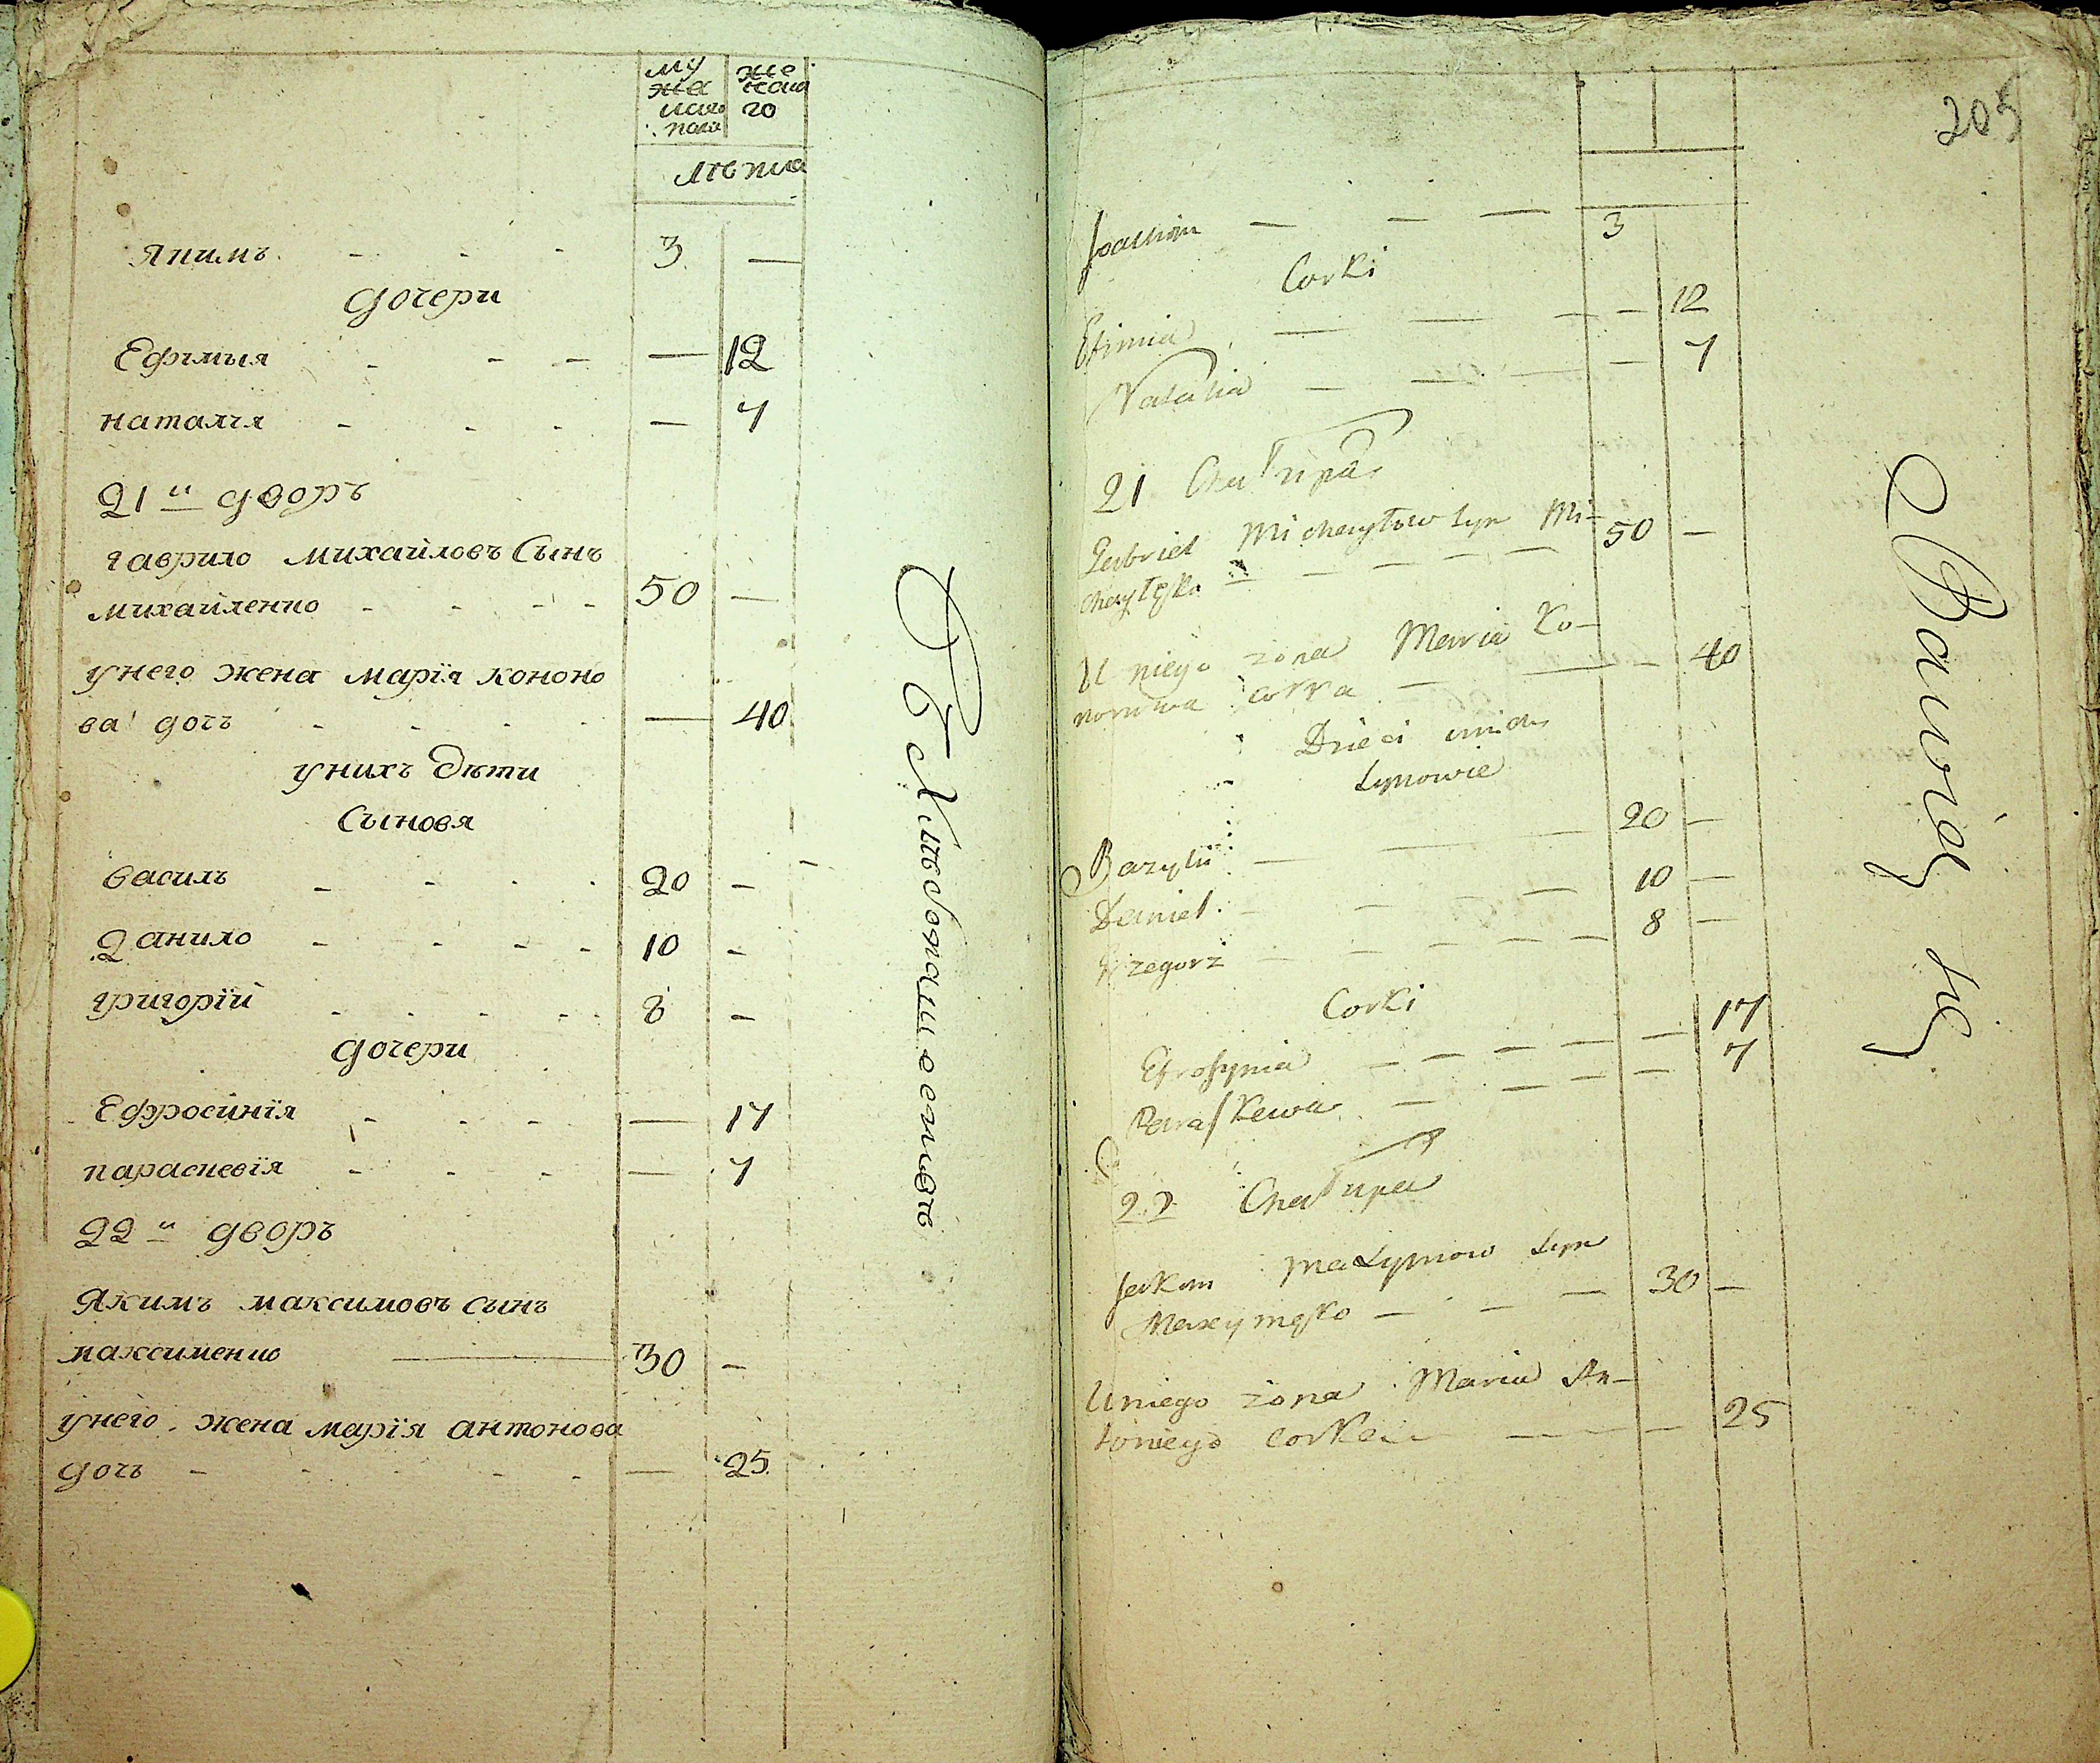 му же
жеска наго
маго го
пола
лѣта
Якимъ - - - 3 —
дочери
Ефимия - - - — 12
наталия - - - — 7
21й дворъ
гаврило михайловъ Сынъ
михайленко - - - - 50 —
унего жена марїя кононо
ва дочь - - - - — 40
унихъ дѣти
Сыновя
василь - - - - 20 -
Данило - - - - 10 -
григорїй - - - - - 8 -
дочери
Ефросинїя - - - — 17
параскевїя - - - — 7
22й дворъ
Якимъ максимовъ сынъ
максименко —— 30 -
унего жена марїя антонова
дочь - - - - - — 25
205
Joachim — — — 3
Corki
Efimia — — — — 12
Natalia — — — — 7
21 Chałupa
Gabriel Michayłow Syn Mi-
chayłęko — — — — 50 —
U niego żona Maria Ko-
nonowa corka — — — 40
Dzieci unich
Synowie
Bazyli — — — 20 —
Daniel — — — 10 —
Grzegorz — — — — — 8 —
Corki
Efrosynia — — — — — 17
Paraskewa — — — — 7
22 Chałupa
Jakim Maxymow Syn
Maxymęko — — — 30 —
Uniego żona Maria An-
toniego corka — — — — 25
Bawią się